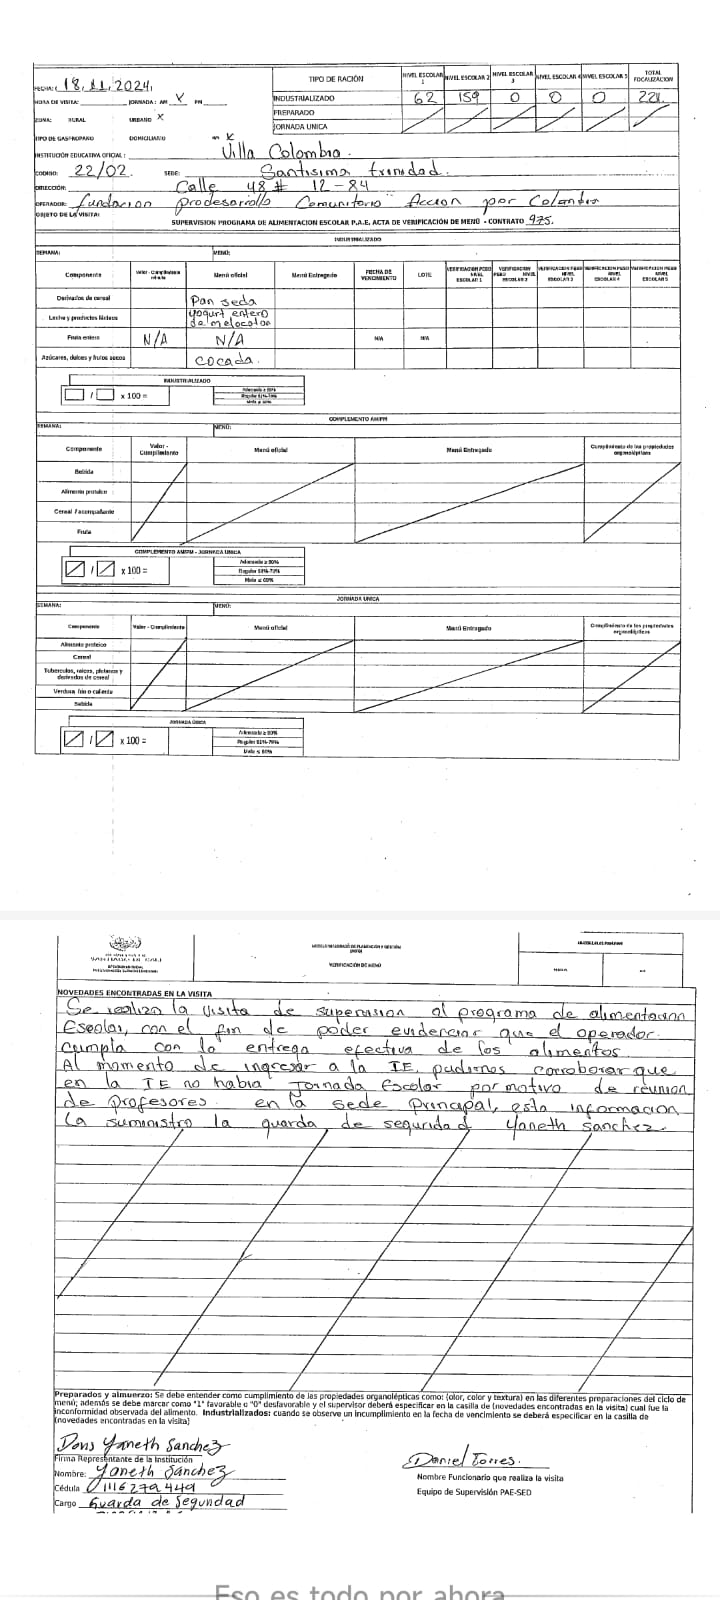 FECHA: ( 18, 11, 2024,
HORA DE VISITA: JORNADA: AM X PM
ZONA: RURAL URBANO X
DOMICILIARIO X
INSTITUCIÓN EDUCATIVA OFICIAL: Villa Colombia.
CODIGO: 22/02. SEDE: Santisima trinidad.
DIRECCIÓN: Calle 48 # 12-84
OPERADOR: fundacion prodesarrollo Comunitario Accion por Colombia
OBJETO DE LA VISITA: SUPERVISION PROGRAMA DE ALIMENTACION ESCOLAR P.A.E. ACTA DE VERIFICACIÓN DE MENÚ - CONTRATO 975.
TIPO DE RACIÓN NIVEL ESCOLAR 1 NIVEL ESCOLAR 2 NIVEL ESCOLAR 3 NIVEL ESCOLAR 4 NIVEL ESCOLAR 5 TOTAL FOCALIZACION
INDUSTRIALIZADO 62 159 0 0 0 221.
PREPARADO
JORNADA UNICA
INDUSTRIALIZADO
SEMANA: MENÚ:
Componente Valor - Cumplimiento Menú oficial Menú Entregado FECHA DE VENCIMIENTO LOTE VERIFICACION PESO NIVEL ESCOLAR 1 VERIFICACION PESO NIVEL ESCOLAR 2 VERIFICACION PESO NIVEL ESCOLAR 3 VERIFICACION PESO NIVEL ESCOLAR 4 VERIFICACION PESO NIVEL ESCOLAR 5
Derivados de cereal Pan seda
Leche y productos lácteos yogurt entero de melocoton
Fruta entera N/A N/A N/A N/A
Azúcares, dulces y frutos secos cocada.
INDUSTRIALIZADO
/ x 100 =
Adecuado ≥ 80%
Regular 61%-79%
Malo ≤ 60%
COMPLEMENTO AM/PM
SEMANA: MENÚ:
Componente Valor - Cumplimiento Menú oficial Menú Entregado Cumplimiento de las propiedades organolépticas
Bebida
Alimento proteico
Cereal / acompañante
Fruta
COMPLEMENTO AM/PM - JORNADA UNICA
/ x 100 =
Adecuado ≥ 80%
Regular 61%-79%
Malo ≤ 60%
JORNADA UNICA
SEMANA: MENÚ:
Componente Valor - Cumplimiento Menú oficial Menú Entregado Cumplimiento de las propiedades organolépticas
Alimento proteico
Cereal
Tuberculos, raices, platanos y derivados de cereal
Verdura fria o caliente
Bebida
JORNADA ÚNICA
/ x 100 =
Adecuado ≥ 80%
Regular 61%-79%
Malo ≤ 60%
SANTIAGO DE CALI
VERIFICACIÓN DE MENÚ
NOVEDADES ENCONTRADAS EN LA VISITA
Se realizo la visita de supervision al programa de alimentacion
Escolar, con el fin de poder evidenciar que el operador
cumpla con la entrega efectiva de los alimentos
Al momento de ingresar a la IE, pudimos corroborar que
en la IE no habia Jornada Escolar por motivo de reunion
de profesores en la sede Principal, esta informacion
la suministro la guarda de seguridad Yaneth Sanchez.
Preparados y almuerzo: Se debe entender como cumplimiento de las propiedades organolépticas como: (olor, color y textura) en las diferentes preparaciones del ciclo de
menú; además se debe marcar como "1" favorable o "0" desfavorable y el supervisor deberá especificar en la casilla de (novedades encontradas en la visita) cual fue la
inconformidad observada del alimento. Industrializados: cuando se observe un incumplimiento en la fecha de vencimiento se deberá especificar en la casilla de
(novedades encontradas en la visita)
Doris Yaneth Sanchez
Firma Representante de la Institución
Nombre: Yaneth Sanchez
Cédula 1116279449
Cargo Guarda de Seguridad
Daniel Torres.
Nombre Funcionario que realiza la visita
Equipo de Supervisión PAE-SED
Eso es todo por ahora